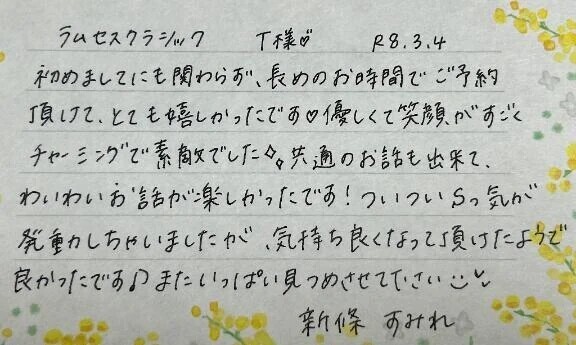 ラムセスクラシック T様♡ R8.3.4
初めましてにも関わらず、長めのお時間でご予約
頂けて、とても嬉しかったです♡優しくて笑顔がすごく
チャーミングで素敵でした✧。共通のお話も出来て、
わいわいお話が楽しかったです！ついついSっ気が
発動しちゃいましたが、気持ち良くなって頂けたようで
良かったです♪またいっぱい見つめさせて下さい
新條 すみれ